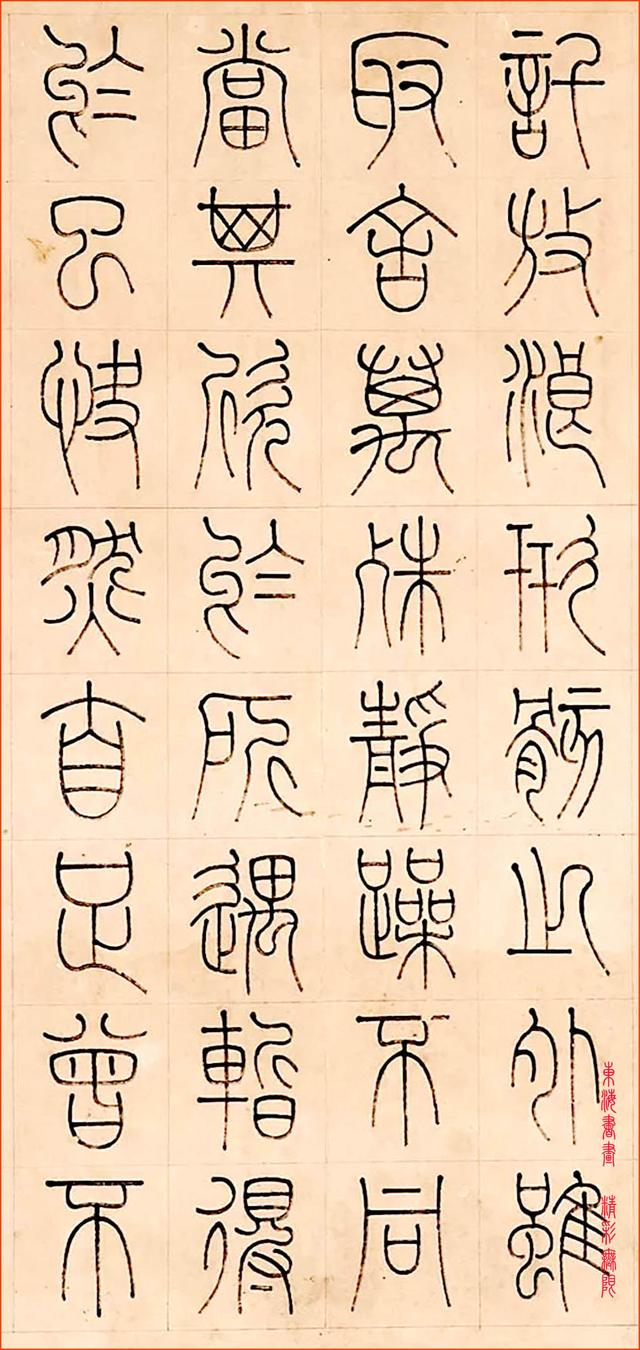 託放浪形骸之外雖
取舍萬殊靜躁不同
當其欣於所遇暫得
於己快然自足曾不
東海書畫 精彩無限